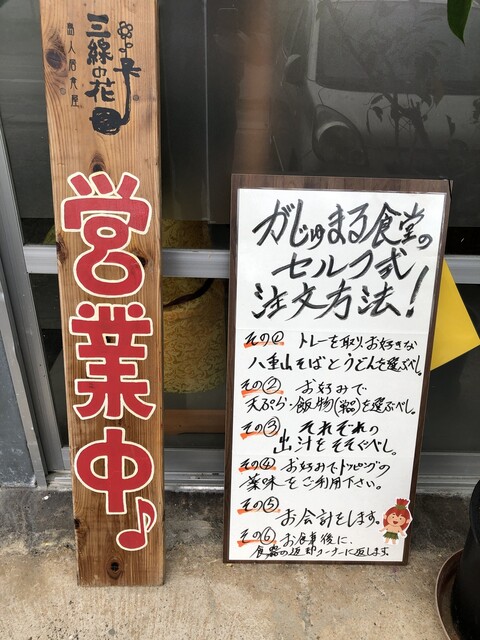 三線の花
島人居食屋
営業中♪
がじゅまる食堂の
セルフ式
注文方法!
その① トレーを取り、お好きな
八重山そばとうどんを選ぶべし。
その② お好みで
天ぷら・飯物(単品)を選ぶべし。
その③ それぞれの
出汁をそそぐべし。
その④ お好みでトッピングの
薬味をご利用下さい。
その⑤
お会計をします。
その⑥ お食事後に、
食器の返却コーナーに返します